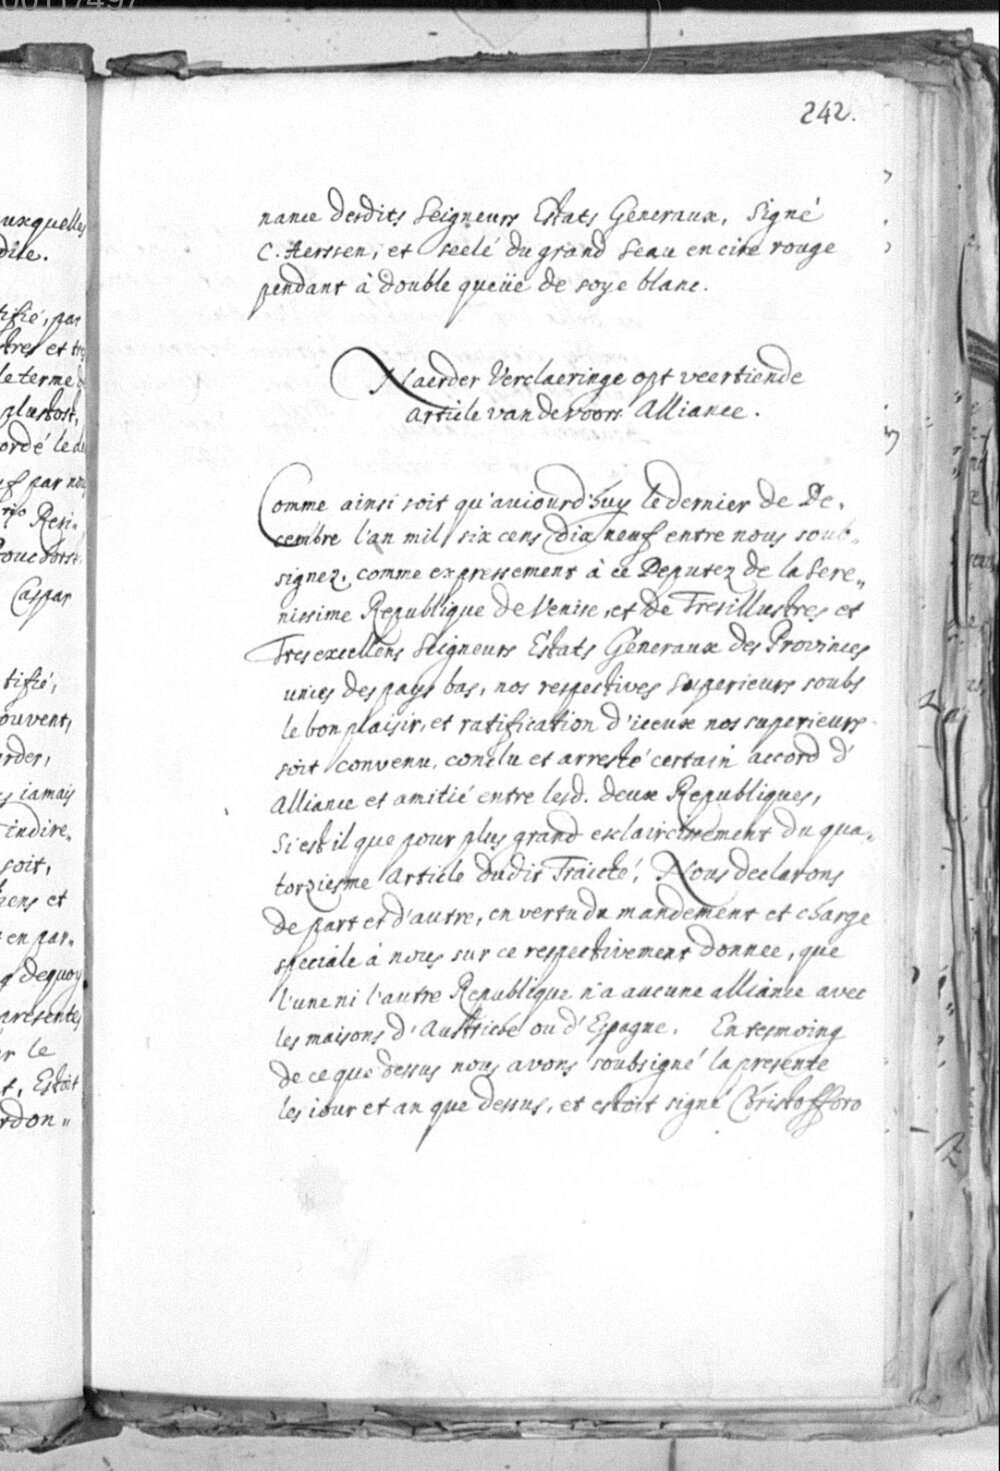 00117497
242.
nance desdits Seigneurs Estats Generaux, signé
C. Aerssen, et seelé du grand Seau en cire rouge
pendant à double queüe de soye blanc.
Naerder Verclaeringe opt veertiende
article van de voors. Alliance.
Comme ainsi soit qu'auiourd'huy le dernier de De,
cembre l'an mil six cens dix neuf entre nous soub„
signez, comme expressement à ce Deputez de la Sere„
nissime Republique de Venise, et de Tresillustres et
Tres excellens Seigneurs Estats Generaux des Provinces
unies des pays bas, nos respectives Superieurs soubs
le bon plaisir, et ratification d'iceux nos superieurs
soit convenu, conclu et arresté certain accord d'
Alliance et amitié entre lesd. deux Republiques,
Si est il que pour plus grand esclaircissement du qua„
torziesme Article dudit Traicté, Nous declarons
de part et d'autre, en vertu du mandement et charge
speciale à nous sur ce respectivement donnee, que
l'une ni l'autre Republique n'a aucune alliance avec
les maisons d'Austriche ou d'Espagne. En tesmoing
de ce que dessus nous avons soubsigné la presente
les iour et an que dessus, et estoit signé Christofforo
uxquelles
dite.
tifié, par
stres et tres
le terme
plustost,
ordé le
uf par nous
Resi„
Caspar
tifié,
ouvent,
rder,
s iamais
indire„
soit,
hens et
en par„
dequoy
presentes
r le
t, Estoit
rdon„